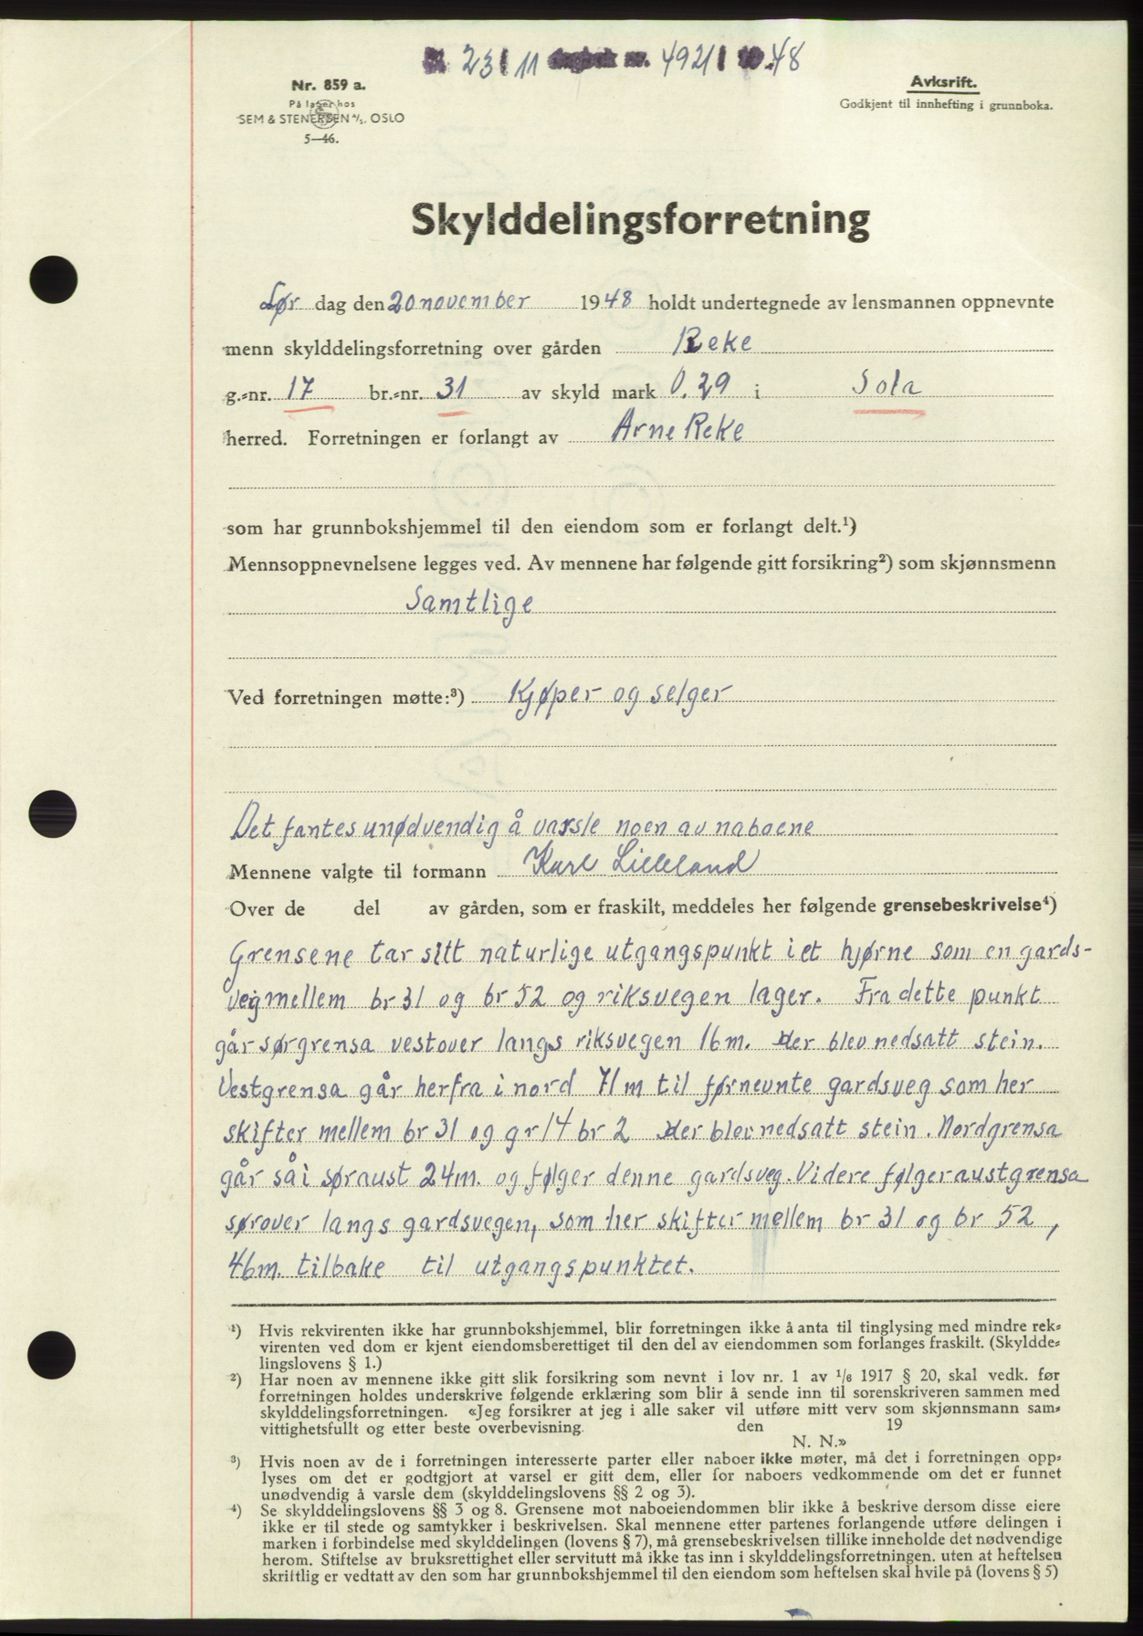 23/11 dagbok nr. 4921 1948
Nr. 859 a.
På lager hos
SEM & STENERSEN A/S, OSLO
5—46.
Avksrift.
Godkjent til innhefting i grunnboka.
Skylddelingsforretning
Lør dag den 20 november 1948 holdt undertegnede av lensmannen oppnevnte
menn skylddelingsforretning over gården Reke
g.-nr. 17 br.-nr. 31 av skyld mark 0.29 i Sola
herred. Forretningen er forlangt av Arne Reke
som har grunnbokshjemmel til den eiendom som er forlangt delt.¹)
Mennsoppnevnelsene legges ved. Av mennene har følgende gitt forsikring²) som skjønnsmenn
Samtlige
Ved forretningen møtte:³) Kjøper og selger
Det fantes unødvendig å varsle noen av naboene
Mennene valgte til formann Karl Lilleland
Over de del av gården, som er fraskilt, meddeles her følgende grensebeskrivelse⁴)
Grensene tar sitt naturlige utgangspunkt i et hjørne som en gards-
veg mellem br 31 og br 52 og riksvegen lager. Fra dette punkt
går sørgrensa vestover langs riksvegen 16m. Her blev nedsatt stein.
Vestgrensa går herfra i nord 71 m til førnevnte gardsveg som her
skifter mellem br 31 og gr 14 br 2 Her blev nedsatt stein. Nordgrensa
går så i søraust 24m. og følger denne gardsveg. Videre følger austgrensa
sørover langs gardsvegen, som her skifter mellem br 31 og br 52,
46m. tilbake til utgangspunktet.
¹) Hvis rekvirenten ikke har grunnbokshjemmel, blir forretningen ikke å anta til tinglysing med mindre rek-
virenten ved dom er kjent eiendomsberettiget til den del av eiendommen som forlanges fraskilt. (Skyldde-
lingslovens § 1.)
²) Har noen av mennene ikke gitt slik forsikring som nevnt i lov nr. 1 av 1/6 1917 § 20, skal vedk. før
forretningen holdes underskrive følgende erklæring som blir å sende inn til sorenskriveren sammen med
skylddelingsforretningen. «Jeg forsikrer at jeg i alle saker vil utføre mitt verv som skjønnsmann sam-
vittighetsfullt og etter beste overbevisning. den 19
N. N.»
³) Hvis noen av de i forretningen interesserte parter eller naboer ikke møter, må det i forretningen opp-
lyses om det er godtgjort at varsel er gitt dem, eller for naboers vedkommende om det er funnet
unødvendig å varsle dem (skylddelingslovens §§ 2 og 3).
⁴) Se skylddelingslovens §§ 3 og 8. Grensene mot naboeiendommen blir ikke å beskrive dersom disse eiere
ikke er til stede og samtykker i beskrivelsen. Skal mennene etter partenes forlangende utføre delingen i
marken i forbindelse med skylddelingen (lovens § 7), må grensebeskrivelsen tillike inneholde det nødvendige
herom. Stiftelse av bruksrettighet eller servitutt må ikke tas inn i skylddelingsforretningen. uten at heftelsen
skriftlig er vedtatt av den som har grunnbokshjemmel til den eiendom som heftelsen skal hvile på (lovens § 5)